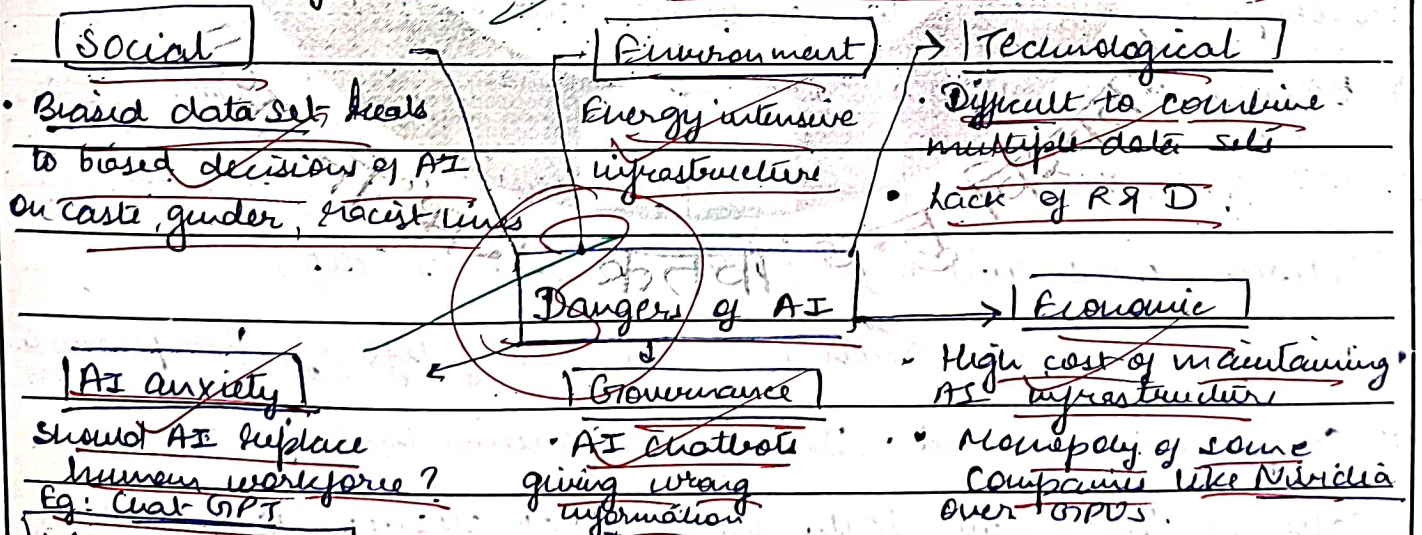 Social
• Biased data set leads
to biased decisions of AI
on caste, gender, racist lines
Environment
Energy intensive
infrastructure
Technological
• Difficult to combine
multiple data sets
• Lack of R & D.
Dangers of AI
Economic
• High cost of maintaining
AI infrastructure
• Monopoly of some
companies like Nividia
over GPUs.
AI anxiety
Should AI replace
human workforce?
Eg: Chat GPT
Governance
• AI Chatbots
giving wrong
information